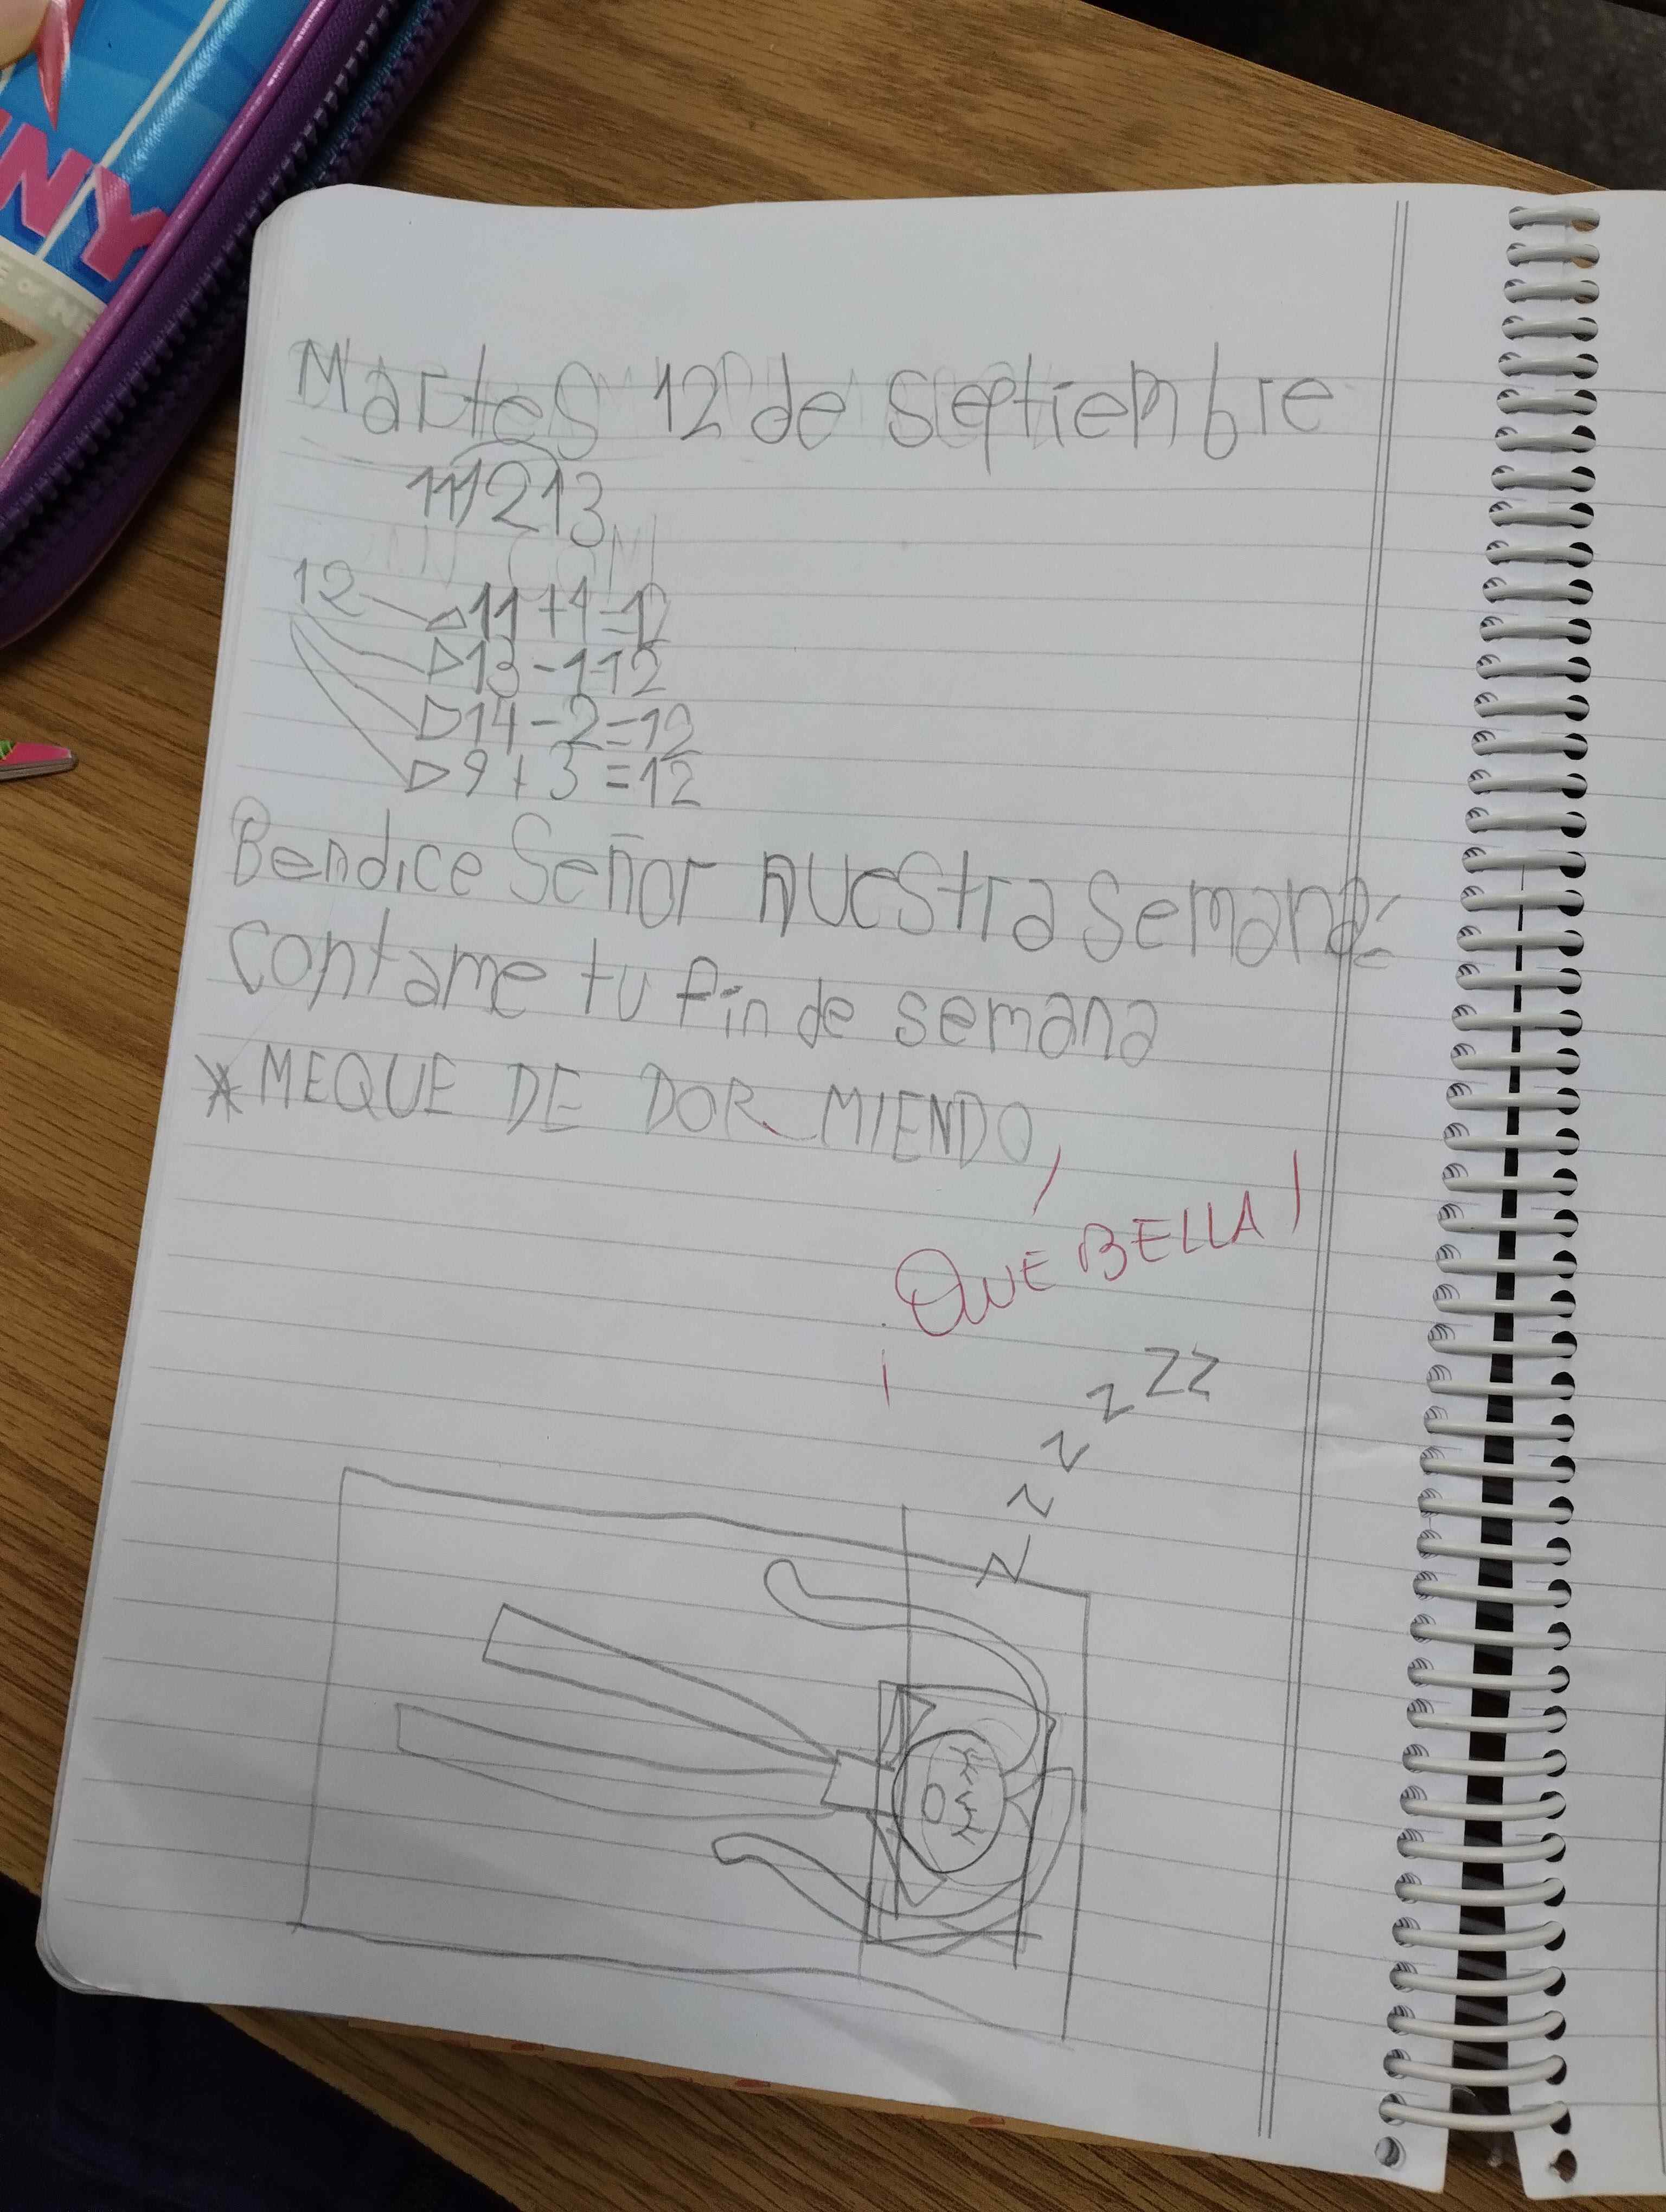 NNY
E OF NE
Martes 12 de septiembre
11 12 13
12 11+1=12
13-1=12
14-2=12
9+3=12
Bendice Señor nuestra semana
contame tu fin de semana
*MEQUE DE DOR MIENDO
¡QUE BELLA!
z z z z Z Z